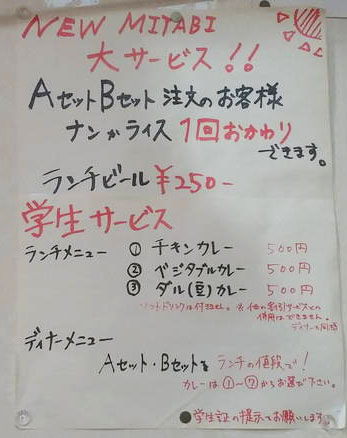 NEW MITABI
大サービス!!
AセットBセット注文のお客様
ナンかライス1回おかわり
できます。
ランチビール¥250-
学生サービス
ランチメニュー ① チキンカレー 500円
② ベジタブルカレー 500円
③ ダル(豆)カレー 500円
ソフトドリンクは付きません。※他の割引サービスとの
併用はできません。
ディナーも同様
ディナーメニュー
Aセット・Bセットを ランチの値段で!
カレーは①〜⑦からお選び下さい。
●学生証の提示でお願いします。